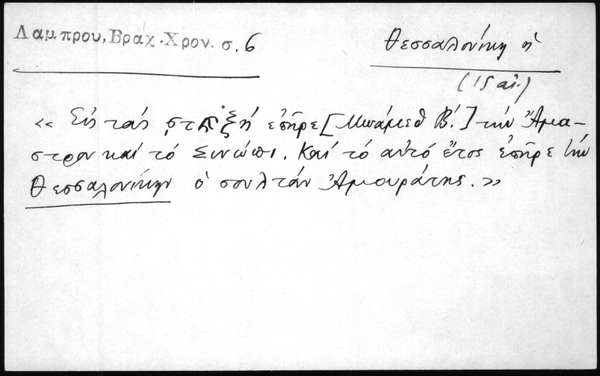 Λαμπρου, Βραχ. Χρον. σ. 6
Θεσσαλονίκη ἡ
(15 αἰ.)
« Εἰς τὰς ἐπῆρε [Μπάμεθ Β΄.] τὴν Ἄμα-
στρον καὶ τὸ Σινώπι. Καὶ τὸ αὐτὸ ἔτος ἐπῆρε τὴν
Θεσσαλονίκην ὁ σουλτὰν Ἀμουράτης. »